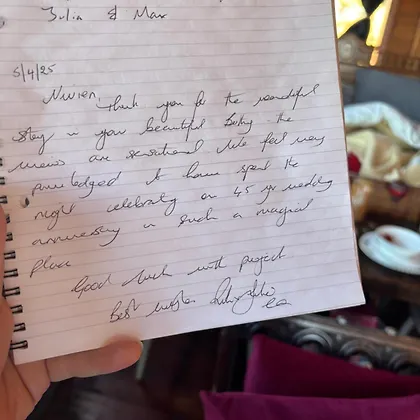 Julia & Max
5/4/25
Nivien,
Thank you for the wonderful
stay in your beautiful the
views are sensational We feel very
priviledged to have spent the
night celebrating our 45 yr wedding
anniversary in such a magical
place
Good luck with project
Best wishes